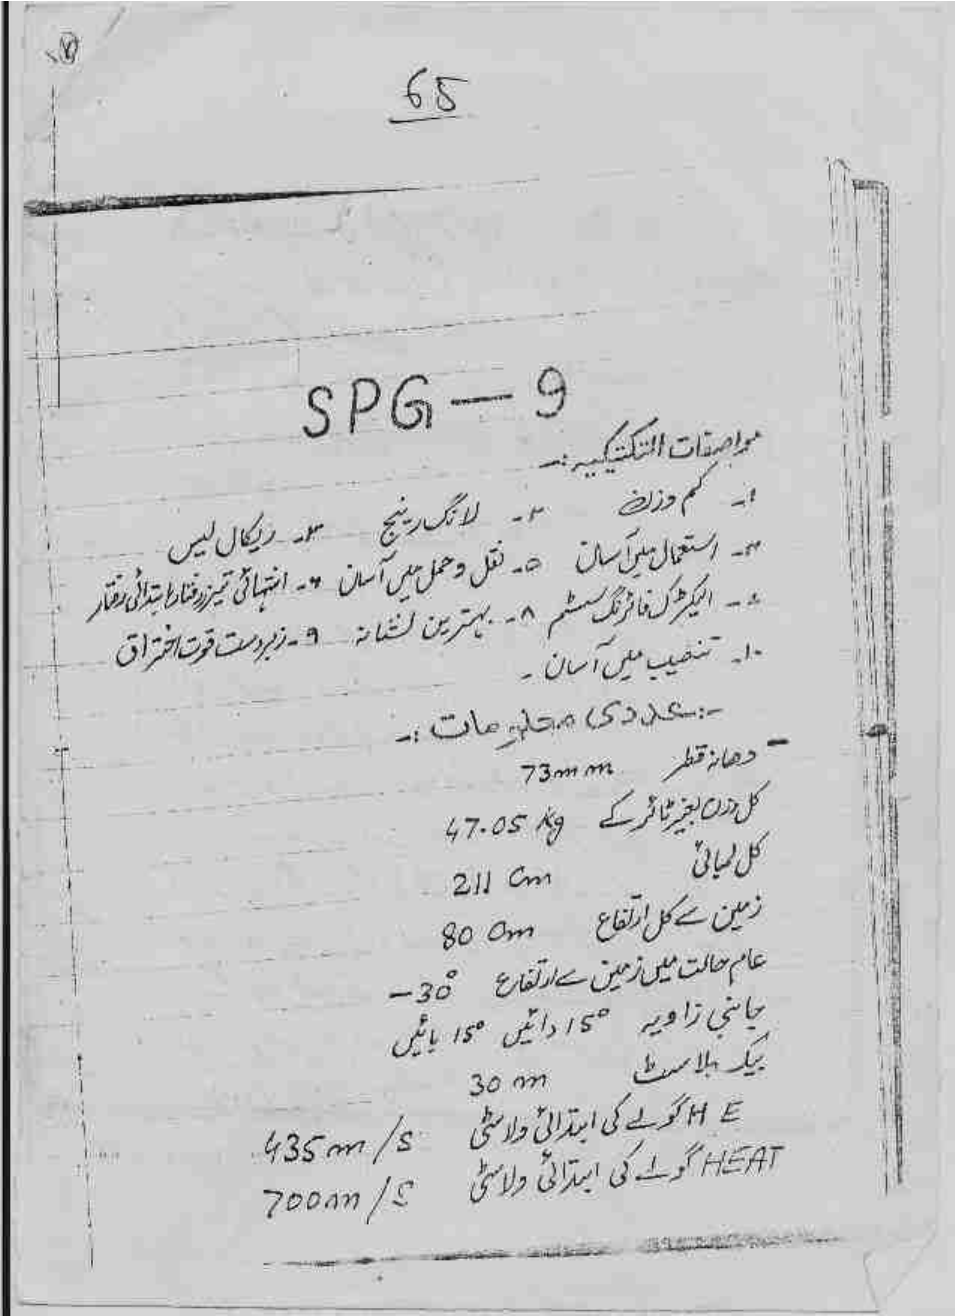 65
SPG — 9
مواصفات التکتیکیہ :-
۱- کم وزن ۲- لانگ رینج ۳- ریکال لیس
۴- استعمال میں آسان ۵- نقل و حمل میں آسان ۶- انتہائی تیز رفتار ابتدائی رفتار
۷- الیکٹرک فائرنگ سسٹم ۸- بہترین نشانہ ۹- زبردست قوت اختراق
۱۰- تنصیب میں آسان -
-: عددی معلومات :-
- دھانہ قطر 73mm
کل وزن بغیر ٹائر کے 47.05 Kg
کل لمبائی 211 Cm
زمین سے کل ارتفاع 80 Cm
عام حالت میں زمین سے ارتفاع -30°
جانبی زاویہ 15° دائیں 15° بائیں
بیک بلاسٹ 30 m
HE گولے کی ابتدائی ولاسٹی 435 m/s
HEAT گولے کی ابتدائی ولاسٹی 700m/s